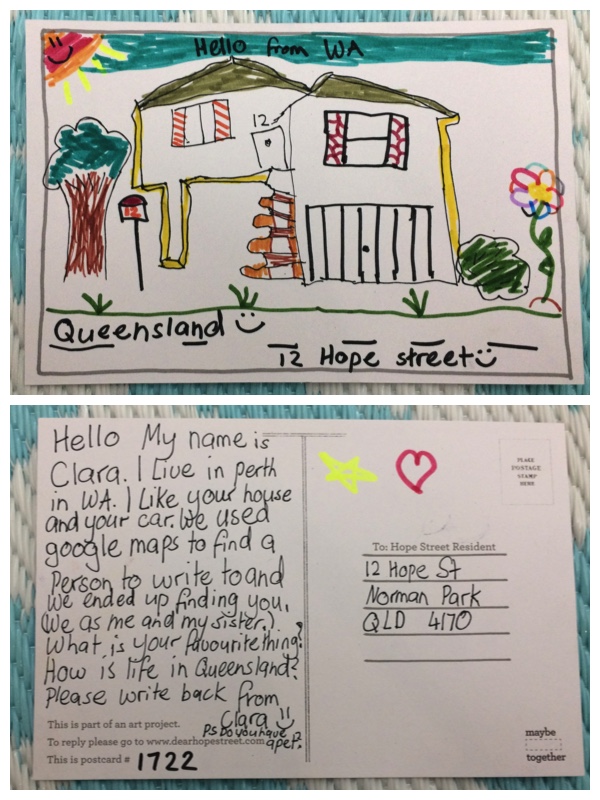 Hello from WA
12
12
Queensland
12 Hope street
Hello My name is
Clara. I Live in perth
in WA. I Like your house
and your car. We used
google maps to find a
Person to write to and
we ended up finding you.
(We as me and my sister.)
What is your favourite thing?
How is life in Queensland?
Please write back from
Clara
Ps Do you have
a pet?
This is part of an art project.
To reply please go to www.dearhopestreet.com
This is postcard # 1722
PLACE
POSTAGE
STAMP
HERE
To: Hope Street Resident
12 Hope St
Norman Park
QLD 4170
maybe
together